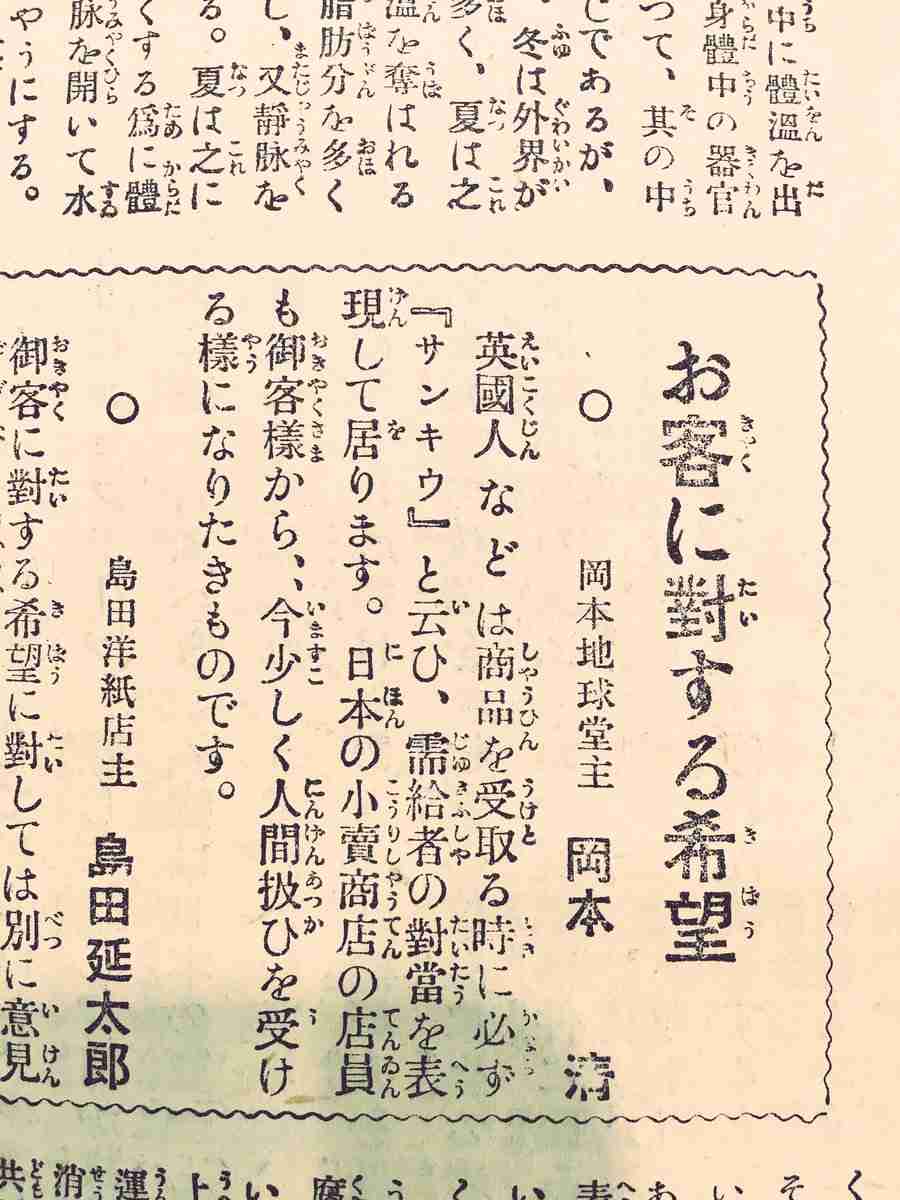 中に體溫を出
身體中の器官
つて、其の中
じであるが、
冬は外界が
多く、夏は之
溫を奪はれる
脂肪分を多く
し、又靜脉を
る。夏は之に
くする爲に體
脉を開いて水
やうにする。
お客に對する希望
○
岡本地球堂主 岡本 淸
英國人などは商品を受取る時に必ず
『サンキウ』と云ひ、需給者の對當を表
現して居ります。日本の小賣商店の店員
も御客樣から、今少しく人間扱ひを受け
る樣になりたきものです。
○
島田洋紙店主 島田延太郎
御客に對する希望に對しては別に意見